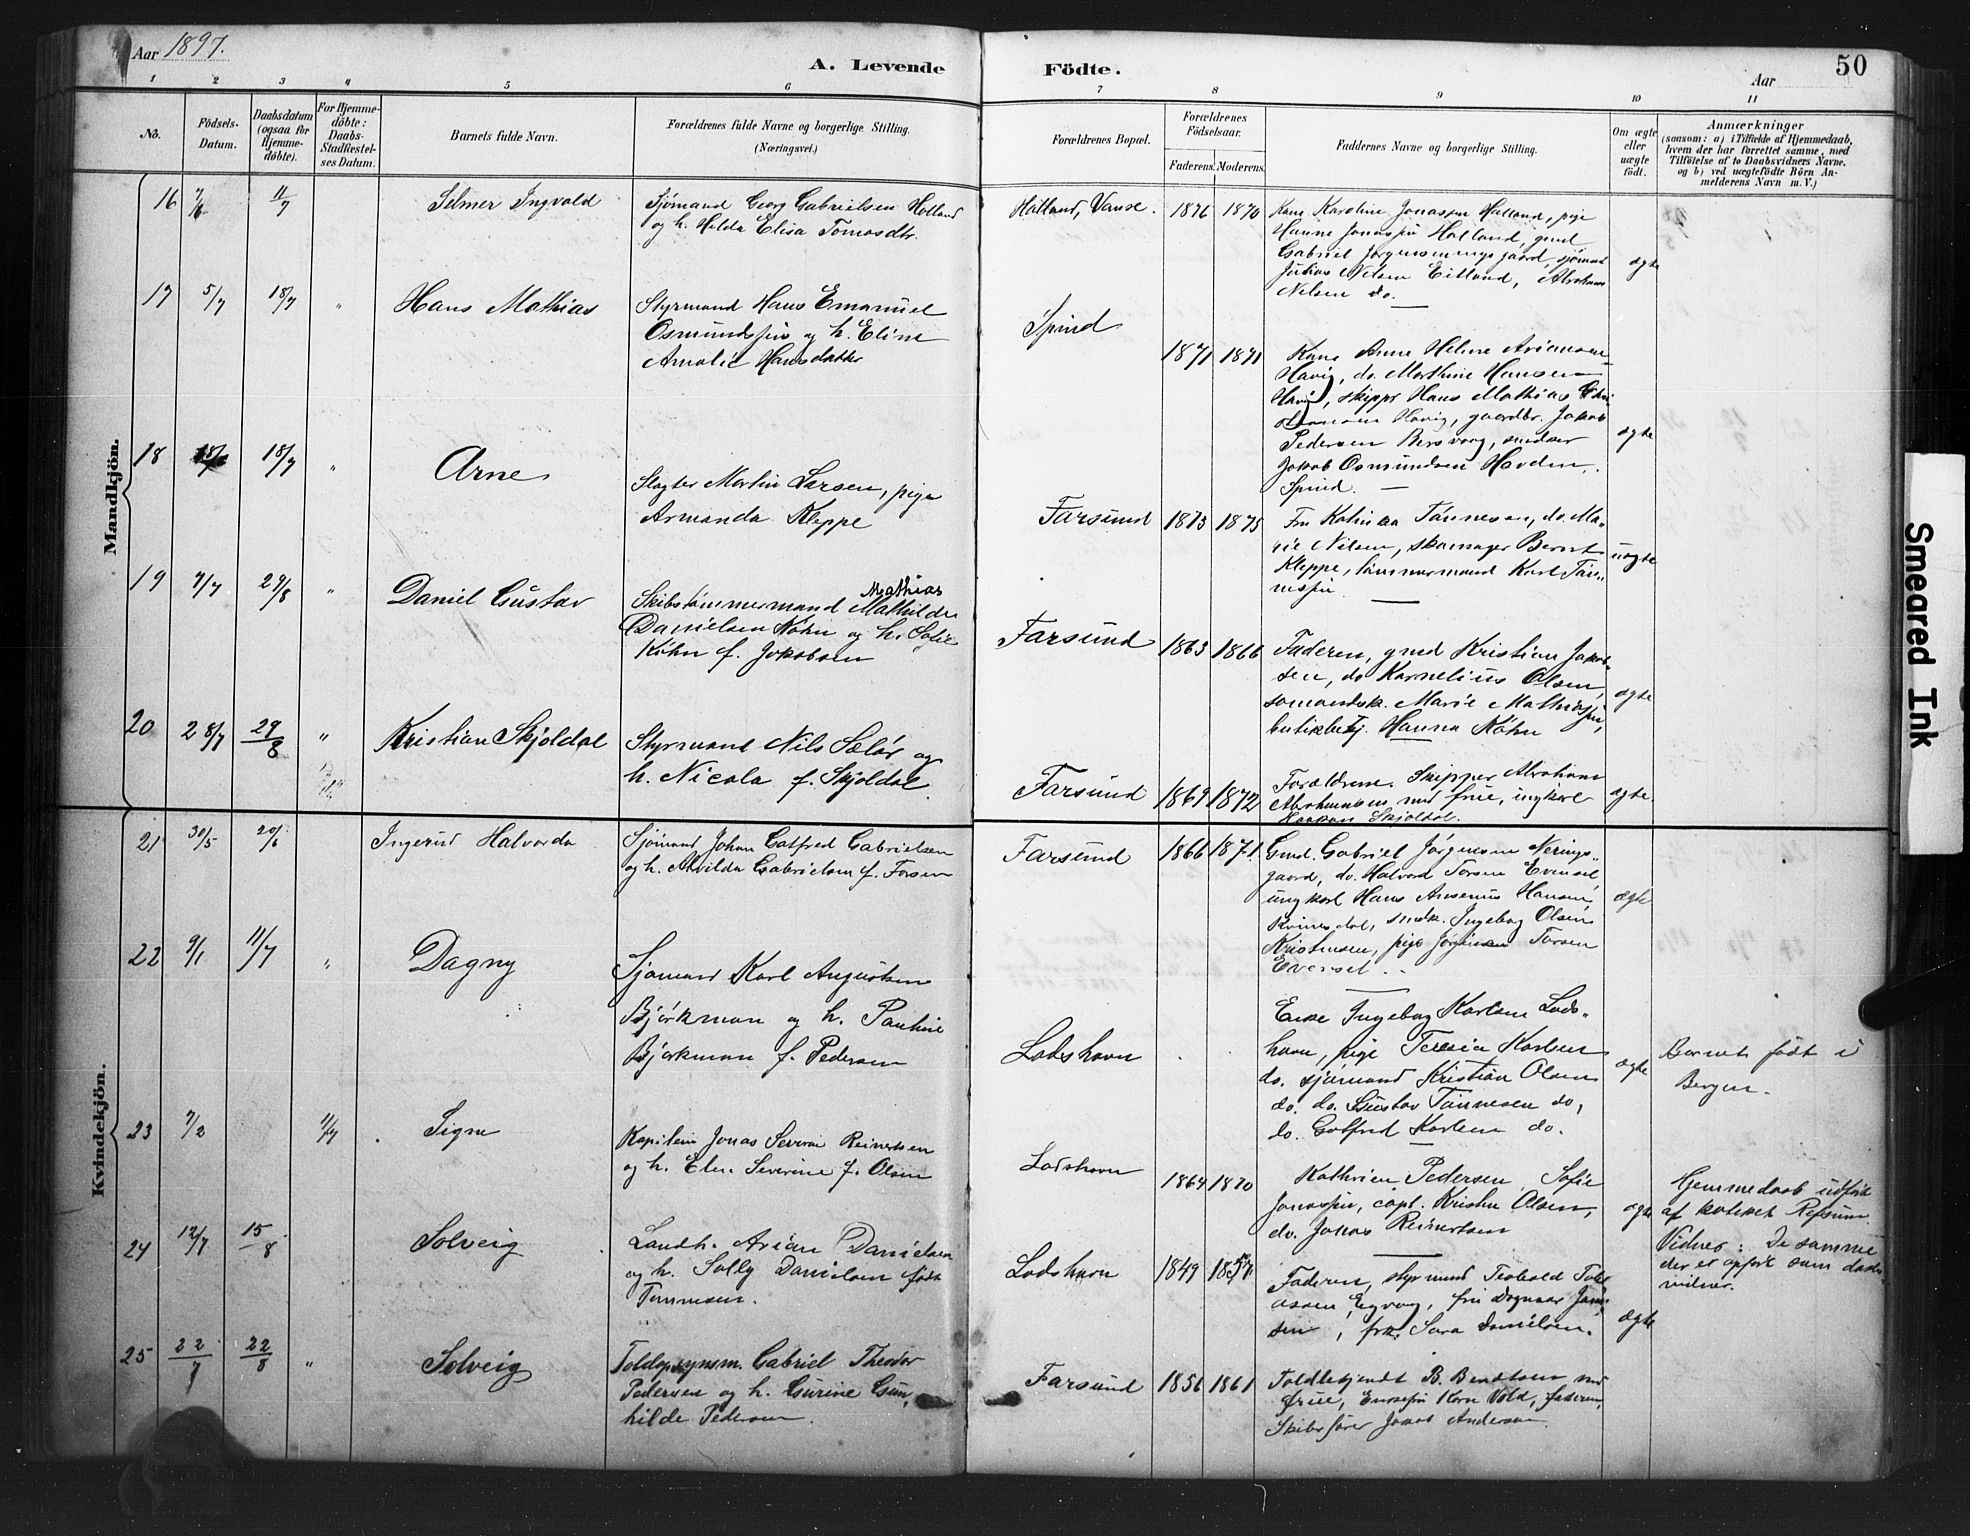 Aar 1897.
A. Levende
Födte.
Aar
50
1 2 3 4 5 6 7 8 9 10 11
No.
Födsels-
Datum.
Daabsdatum
(ogsaa for
Hjemme-
döbte).
For Hjemme-
döbte:
Daabs-
Stadfæstel-
ses Datum.
Barnets fulde Navn.
Forældrenes fulde Navne og borgerlige Stilling.
(Næringsvei.)
Forældrenes Bopæl.
Forældrenes
Födselsaar.
Faderens. Moderens.
Faddernes Navne og borgerlige Stilling.
Om ægte
eller
uægte
födt.
Anmærkninger
(saasom: a) i Tilfælde af Hjemmedaab,
hvem der har forrettet samme, med
Tilföielse af to Daabsvidners Navne.
og b) ved uægtefödte Börn An-
melderens Navn m. V.)
Mandkjön.
16 7/6 11/7 Selmer Ingvald
Sjömand Georg Gabrielsen Holland
og h. Hilda Elisa Tomasdtr.
Halland, Vanse. 1876 1870
Kone Karoline Jonassen Halland, pige
Hanne Halland, gmd
Gabriel Jörgensen gaard, sjömand
Julius Nilsen Eitland, Abraham
Nilsen do.
ægte
17 5/7 18/7 " Hans Mathias
Styrmand Hans Emanuel
Osmundsen og h. Eline
Amalie Hansdatter
Spind
1871 1871
Kone Anne Helene
Havig, do. Marthine Hansen
Havig, skipper Hans Mathias
Havig, gaardbr. Jakob
Pedersen
Jakob Osmundsen
Spind.
ægte
18 18/7 " Arne
Slagter Martin Larsen, pige
Armanda Kleppe
Farsund 1873 1875
Fru Tönnesen, do. Ma-
rie Nilsen, skomager Bernt
Kleppe, tömmermand Karl Tön-
nesen
uægte
19 7/7 29/8 " Daniel Gustav
Mathias
Skibstömmermand Mathilde
Danielsen Köhn og h. Sofie
Köhn f. Jakobsen
Farsund 1863 1866
Faderen, gmd Kristian Jakob-
sen, do Kornelius Olsen,
sömandsk. Marie
butikbetj. Hanna Köhn
ægte
20 28/7 29/8 " Kristian Skjoldal
Styrmand Nils Sælör og
h. Nicola f. Skjoldal.
Farsund 1869 1872
Forældrene. Skipper Abraham
Abrahamsen med frue, ungkarl
Haakon Skjoldal.
ægte
Kvindekjön.
21 30/5 20/6 Ingerid Halvorda
Sjömand Johan Gotfred Gabrielsen
og h. Alvilda Gabrielsen f. Torsen
Farsund 1866 1871
Gmd. Gabriel Jörgensen Nerings-
gaard, do. Halvord Torsen Evensel,
ungkarl Hans Hansen,
Kvinesdal, Ingebog Olsen
Kristensen, pige Torsen
Evensel.
ægte
22 9/1 11/7 " Dagny
Sjömand Karl Augustsen
Björkman og h. Pauline
Björkman f. Pedersen
Lodshavn
Enke Ingebog Karlsen Lods-
havn, pige Teresia Karlsen
do. sjömand Kristian Olsen
do. do. Gustav Tönnesen do,
do. Gotfred Karlsen do.
ægte
Barnet födt i
Bergen.
23 7/2 11/7 Signe
Kaptein Jonas Severin Reinertsen
og h. Elen Severine f. Olsen
Lodshavn
1864 1870
Kathrine Pedersen, Sofie
Jonassen, capt. Kristen Olsen,
do. Jonas Reinertsen
ægte
Hjemmedaab udfört
af kateket Refsum.
Vidner: De samme
der er opfört som daabs-
vidner.
24 12/7 15/8 Solveig
Landh. Arian Danielsen
og h. Sally Danielsen födt
Tönnesen.
Lodshavn 1849 1857
Faderen, styrmand Teobald Tobi-
assen, Eqvog, fru Dagmar
sen, frk. Sara Danielsen.
ægte
25 22/7 22/8 " Solveig
Toldopsynsm. Gabriel Theodor
Pedersen og h. Gurine Gun-
hilde Pedersen.
Farsund 1856 1861
Toldbetjendt B. Bendtsen med
frue, Vold, faderen,
Skibsförer Jakob Andersen.
Smeared Ink